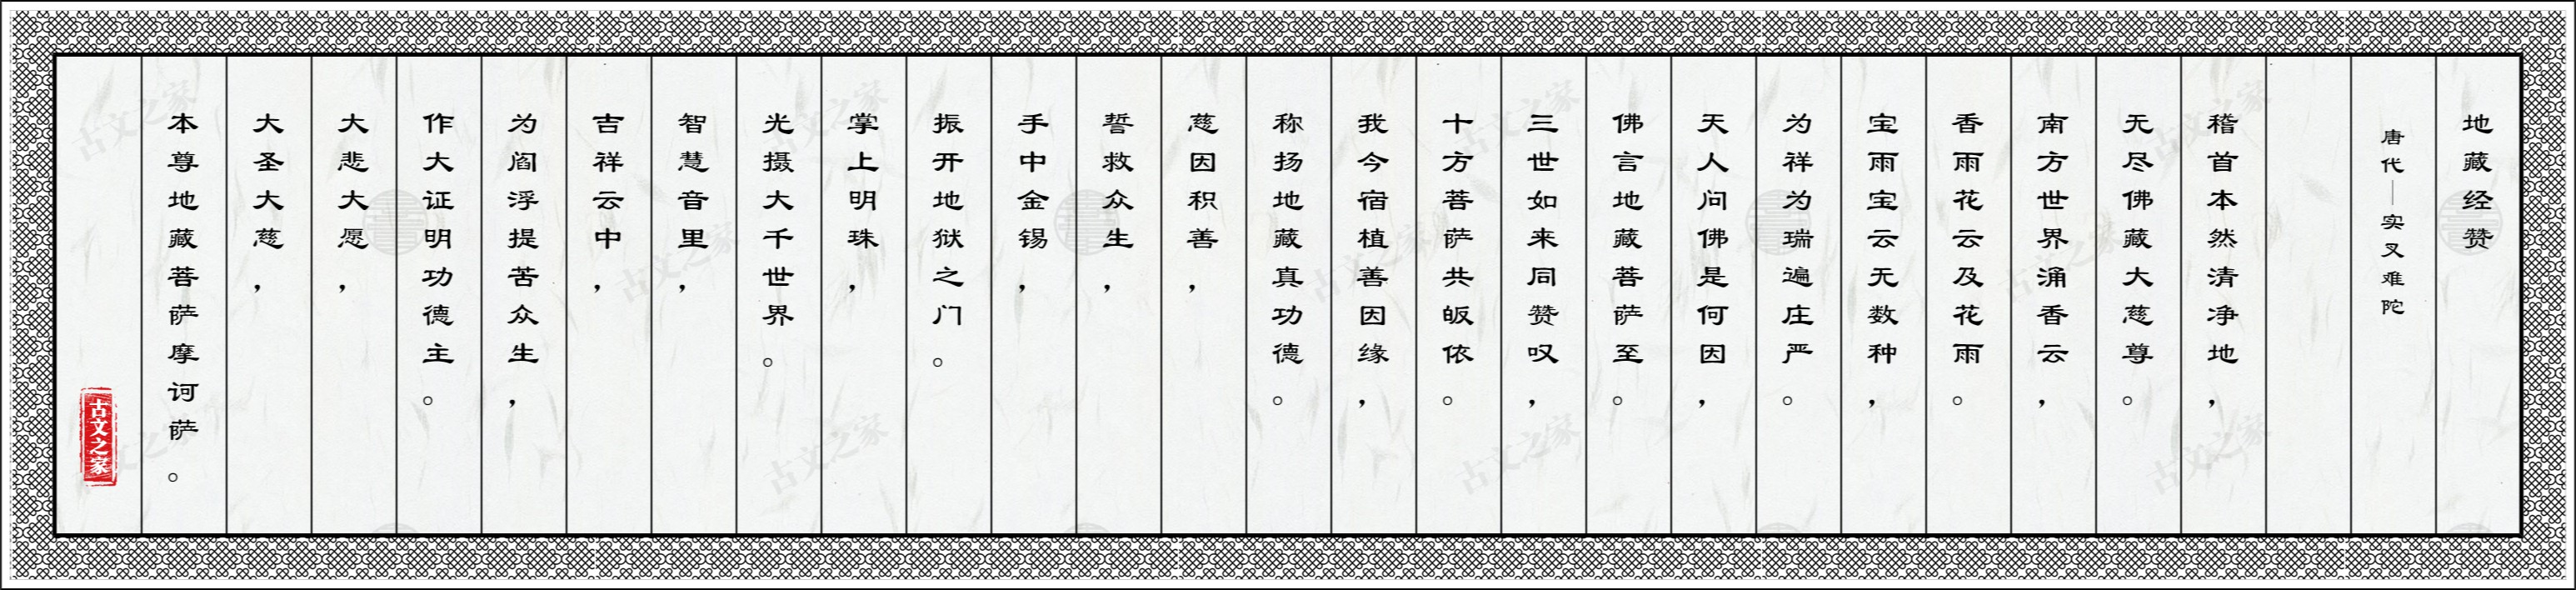 地藏经赞
唐代—实叉难陀
稽首本然清净地，
无尽佛藏大慈尊。
南方世界涌香云，
香雨花云及花雨。
宝雨宝云无数种，
为祥为瑞遍庄严。
天人问佛是何因，
佛言地藏菩萨至。
三世如来同赞叹，
十方菩萨共皈依。
我今宿植善因缘，
称扬地藏真功德。
慈因积善，
誓救众生，
手中金锡，
振开地狱之门。
掌上明珠，
光摄大千世界。
智慧音里，
吉祥云中，
为阎浮提苦众生，
作大证明功德主。
大悲大愿，
大圣大慈，
本尊地藏菩萨摩诃萨。
古文之家